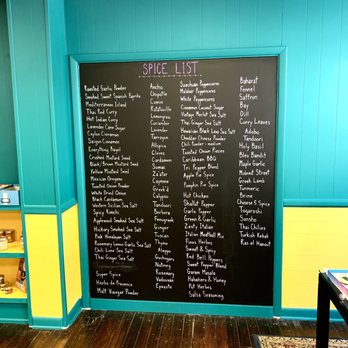 SPICE LIST
Roasted Garlic Powder
Smoked Sweet Spanish Paprika
Mediterranean Island
Thai Red Curry
Hot Indian Curry
Lavender Cane Sugar
Ceylon Cinnamon
Saigon Cinnamon
Everything Bagel
Crushed Mustard Seed
Black/Brown Mustard Seed
Yellow Mustard Seed
Mexican Oregano
Toasted Onion Powder
White Dried Onion
Black Cardamom
Western Sicilian Sea Salt
Spicy Kimchi
Applewood Smoked Sea Salt
Hickory Smoked Sea Salt
Pink Himalayan Salt
Rosemary Lemon Garlic Sea Salt
Chili Lime Sea Salt
Thai Ginger Sea Salt
Super Spice
Herbs de Provence
Malt Vinegar Powder
Ancho
Chipotle
Cumin
Ratatouille
Lemongrass
Coriander
Lavender
Tarragon
Allspice
Cloves
Cardamom
Sumac
Za'atar
Cayenne
Greek'd
Calypso
Tandoori
Berbere
Fenugreek
Ginger
Tuscan
Thyme
Aleppo
Gochugaru
Nutmeg
Rosemary
Vadouvan
Epazote
Szechuan Peppercorns
Malabar Peppercorns
White Peppercorns
Cinnamon Coconut Sugar
Vintage Merlot Sea Salt
Thai Ginger Sea Salt
Hawaiian Black Lava Sea Salt
Cheddar Powder
Chili Powder - medium
Toasted Onion Pieces
Caribbean BBQ
Tri Pepper Blend
Apple Pie Spice
Pumpkin Pie Spice
Hot Chicken
Shallot Pepper
Garlic Tagger
Green & Garlic
Zesty Italian
Italian Meatball Mix
Fines Herbs
Sweet & Spicy
Red Bell Peppers
Sweet Pepper Blend
Garam Masala
Habanero & Honey
Pot Herbes
Salsa Seasoning
Baharat
Fennel
Saffron
Bay
Dill
Curry Leaves
Adobo
Tandoori
Holy Basil
Bleu Bandit
Maple Garlic
Midwest Street
Greek Lamb
Turmeric
Chinese 5 Spice
Togarashi
Sansho
Thai Chilies
Turkish Kebab
Ras el Hanout